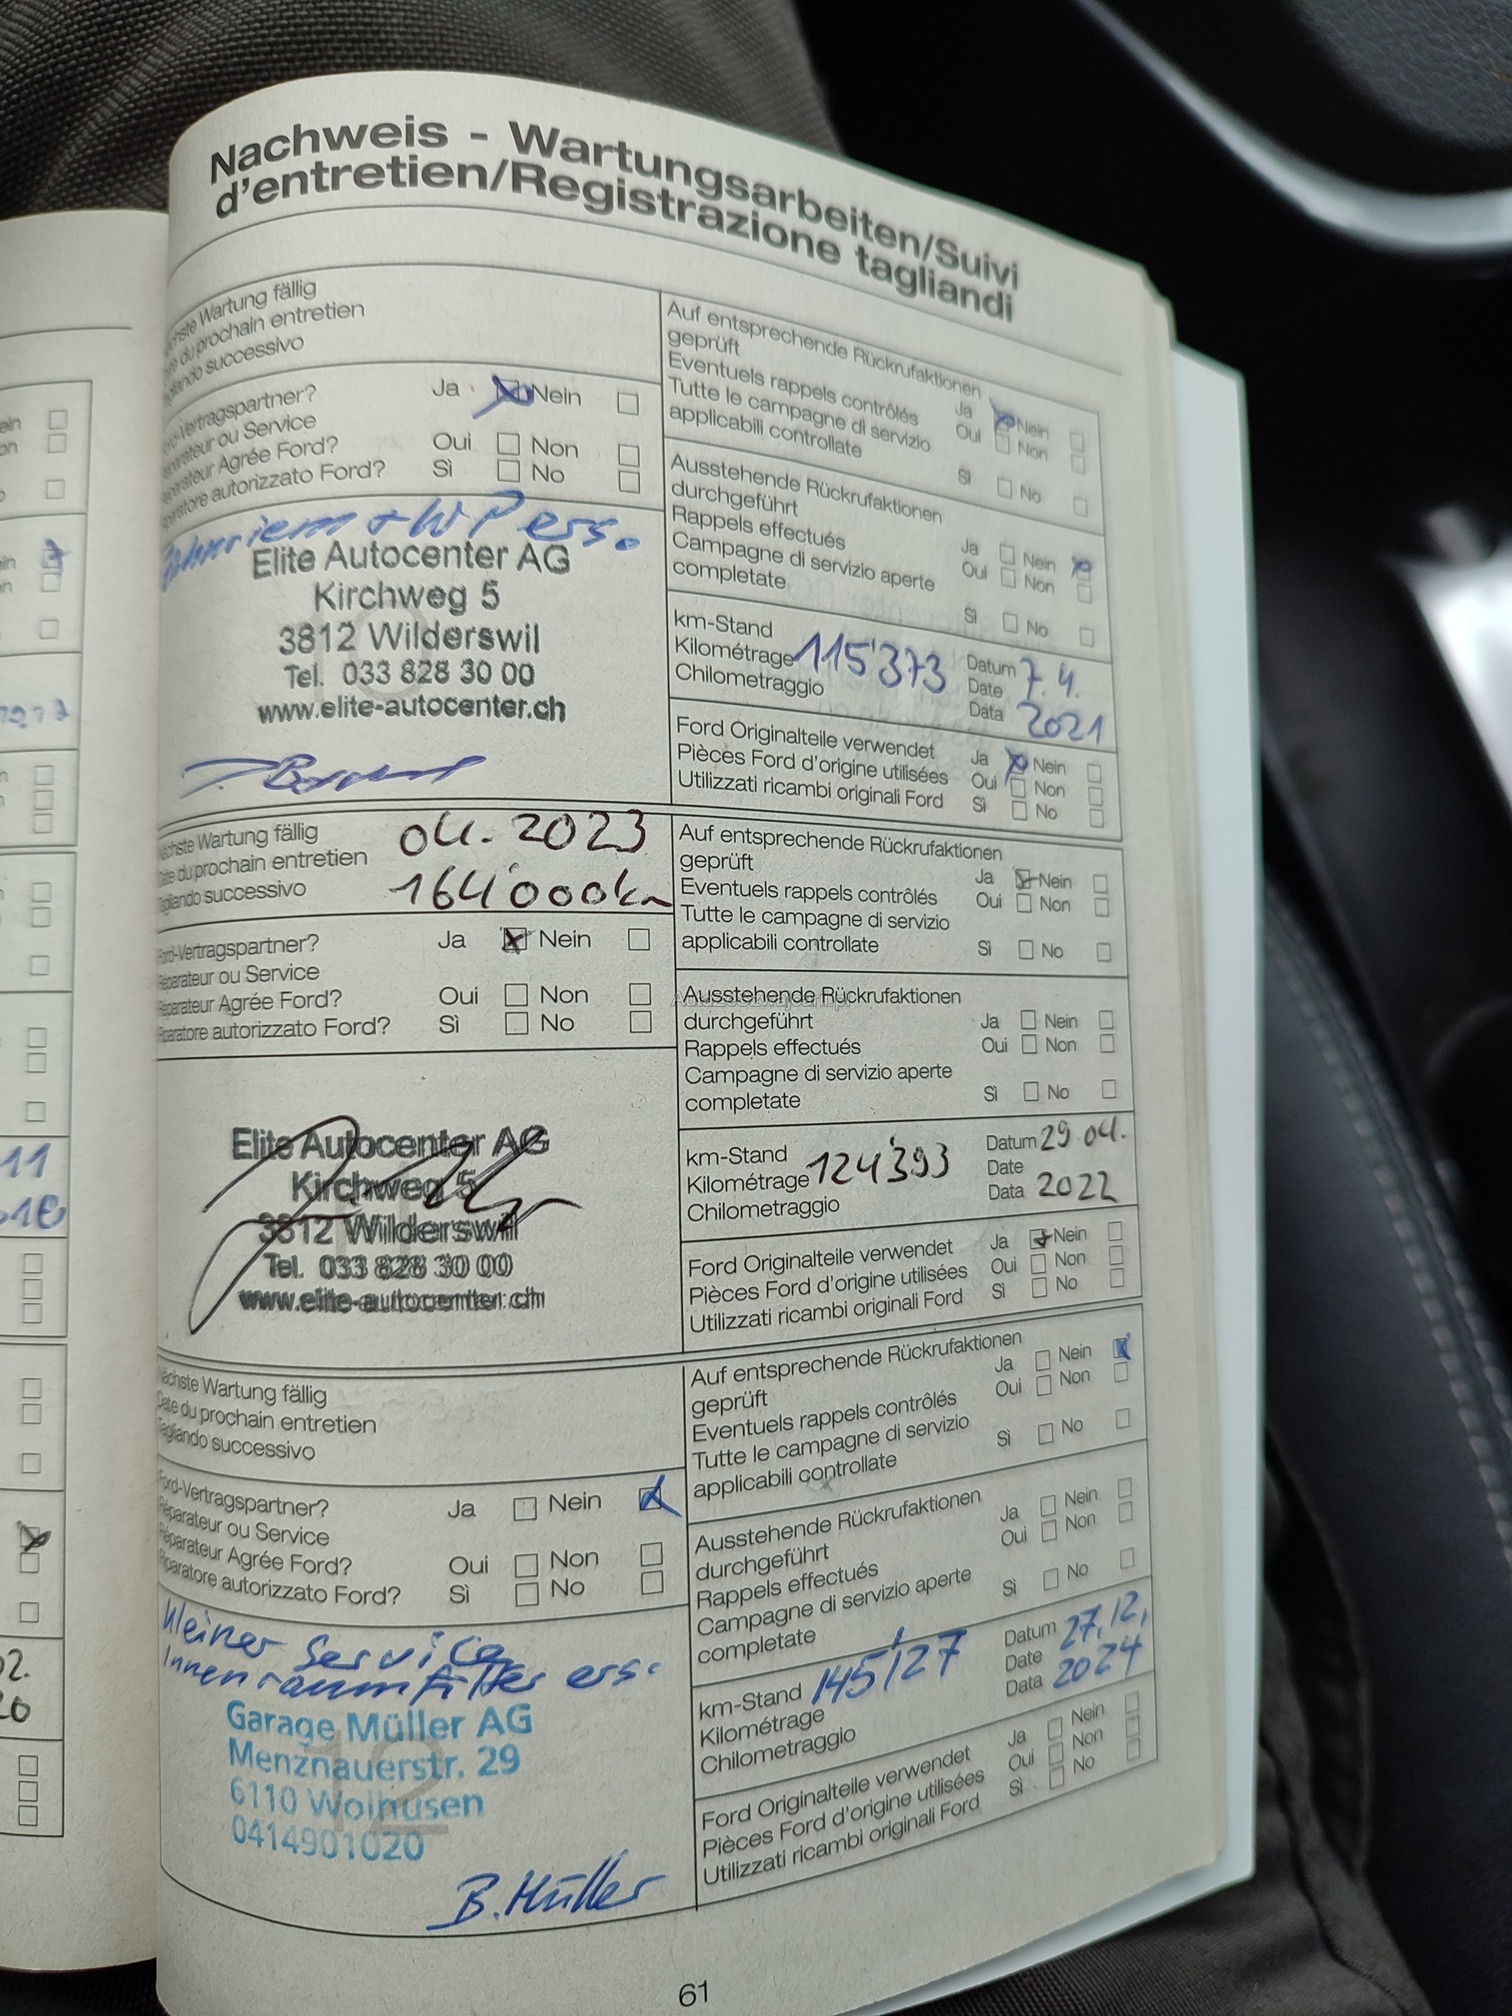 Nachweis - Wartungsarbeiten/Suivi
d'entretien/Registrazione tagliandi
Wartung fällig
du prochain entretien
successivo
Ford-Vertragspartner? Ja Nein
ou Service
Agrée Ford? Oui Non
autorizzato Ford? Sì No
Zahnriem + WP ers.
Elite Autocenter AG
Kirchweg 5
3812 Wilderswil
Tel. 033 828 30 00
www.elite-autocenter.ch
Auf entsprechende Rückrufaktionen
geprüft Ja Nein
Eventuels rappels contrôlés Oui Non
Tutte le campagne di servizio
applicabili controllate Sì No
Ausstehende Rückrufaktionen
durchgeführt Ja Nein
Rappels effectués Oui Non
Campagne di servizio aperte
completate Sì No
km-Stand
Kilométrage 115'373
Chilometraggio
Datum 7.4.
Date
Data 2021
Ford Originalteile verwendet Ja Nein
Pièces Ford d'origine utilisées Oui Non
Utilizzati ricambi originali Ford Sì No
Wartung fällig 04.2023
du prochain entretien
successivo 164'000km
Ford-Vertragspartner? Ja Nein
Réparateur ou Service
Réparateur Agrée Ford? Oui Non
autorizzato Ford? Sì No
Elite Autocenter AG
Kirchweg 5
3812 Wilderswil
Tel. 033 828 30 00
www.elite-autocenter.ch
Auf entsprechende Rückrufaktionen
geprüft Ja Nein
Eventuels rappels contrôlés Oui Non
Tutte le campagne di servizio
applicabili controllate Sì No
Ausstehende Rückrufaktionen
durchgeführt Ja Nein
Rappels effectués Oui Non
Campagne di servizio aperte
completate Sì No
km-Stand
Kilométrage 124'393
Chilometraggio
Datum 29.04.
Date
Data 2022
Ford Originalteile verwendet Ja Nein
Pièces Ford d'origine utilisées Oui Non
Utilizzati ricambi originali Ford Sì No
Nächste Wartung fällig
Date du prochain entretien
Tagliando successivo
Ford-Vertragspartner? Ja Nein
Réparateur ou Service
Réparateur Agrée Ford? Oui Non
autorizzato Ford? Sì No
Kleiner Service
Innenraumfilter ers.
Garage Müller AG
Menznauerstr. 29
6110 Wolhusen
0414901020
12
B. Müller
Auf entsprechende Rückrufaktionen
geprüft Ja Nein
Eventuels rappels contrôlés Oui Non
Tutte le campagne di servizio
applicabili controllate Sì No
Ausstehende Rückrufaktionen
durchgeführt Ja Nein
Rappels effectués Oui Non
Campagne di servizio aperte
completate Sì No
km-Stand 145'127
Kilométrage
Chilometraggio
Datum 27.12.
Date
Data 2024
Ford Originalteile verwendet Ja Nein
Pièces Ford d'origine utilisées Oui Non
Utilizzati ricambi originali Ford Sì No
61